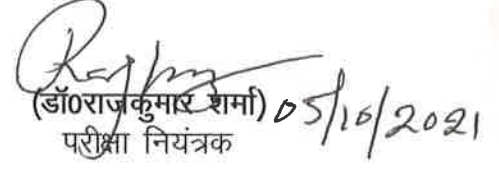 (डॉ0राजकुमार शर्मा) 05/10/2021
परीक्षा नियंत्रक